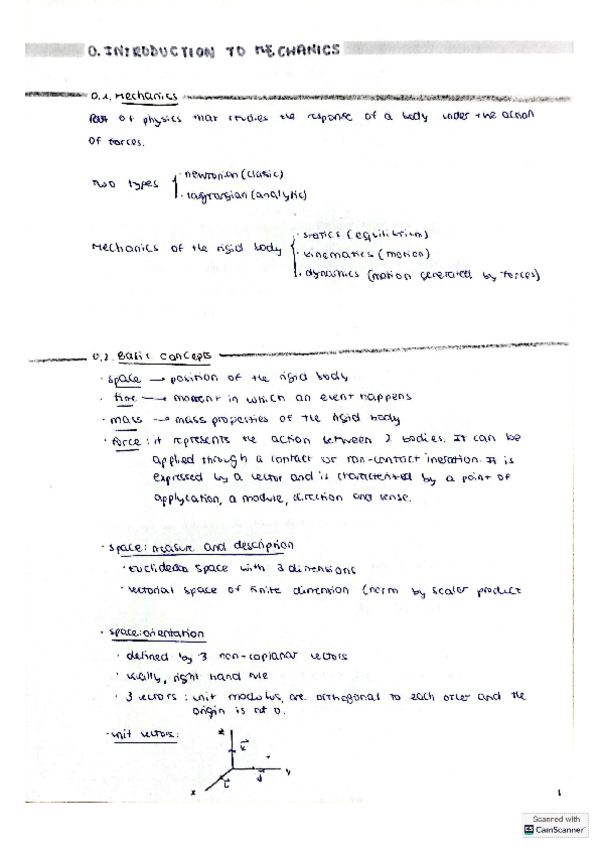 0. INTRODUCTION TO MECHANICS
0.1. Mechanics
Part of physics that studies the response of a body under the action
of forces.
Two types
· newtonian (clasic)
· lagrangian (analytic)
Mechanics of the rigid body
· statics (equilibrium)
· kinematics (motion)
· dynamics (motion generated by forces)
0.2. Basic concepts
· space → position of the rigid body
· time → moment in which an event happens
· mass → mass properties of the rigid body
· force: it represents the action between 2 bodies. It can be
applied through a contact or non-contact It is
expressed by a vector and is by a point of
applycation, a module, direction and sense.
· space: measure and description
· space with 3 dimensions
· vectorial space of finite dimention (norm by scalar product
· space: orientation
· defined by 3 non-coplanar vectors
· usually, right hand rule
· 3 vectors: unit modulus, are orthogonal to each other and the
origin is at 0.
· unit vectors:
z
k
y
j
x
i
1
Scanned with
CamScanner